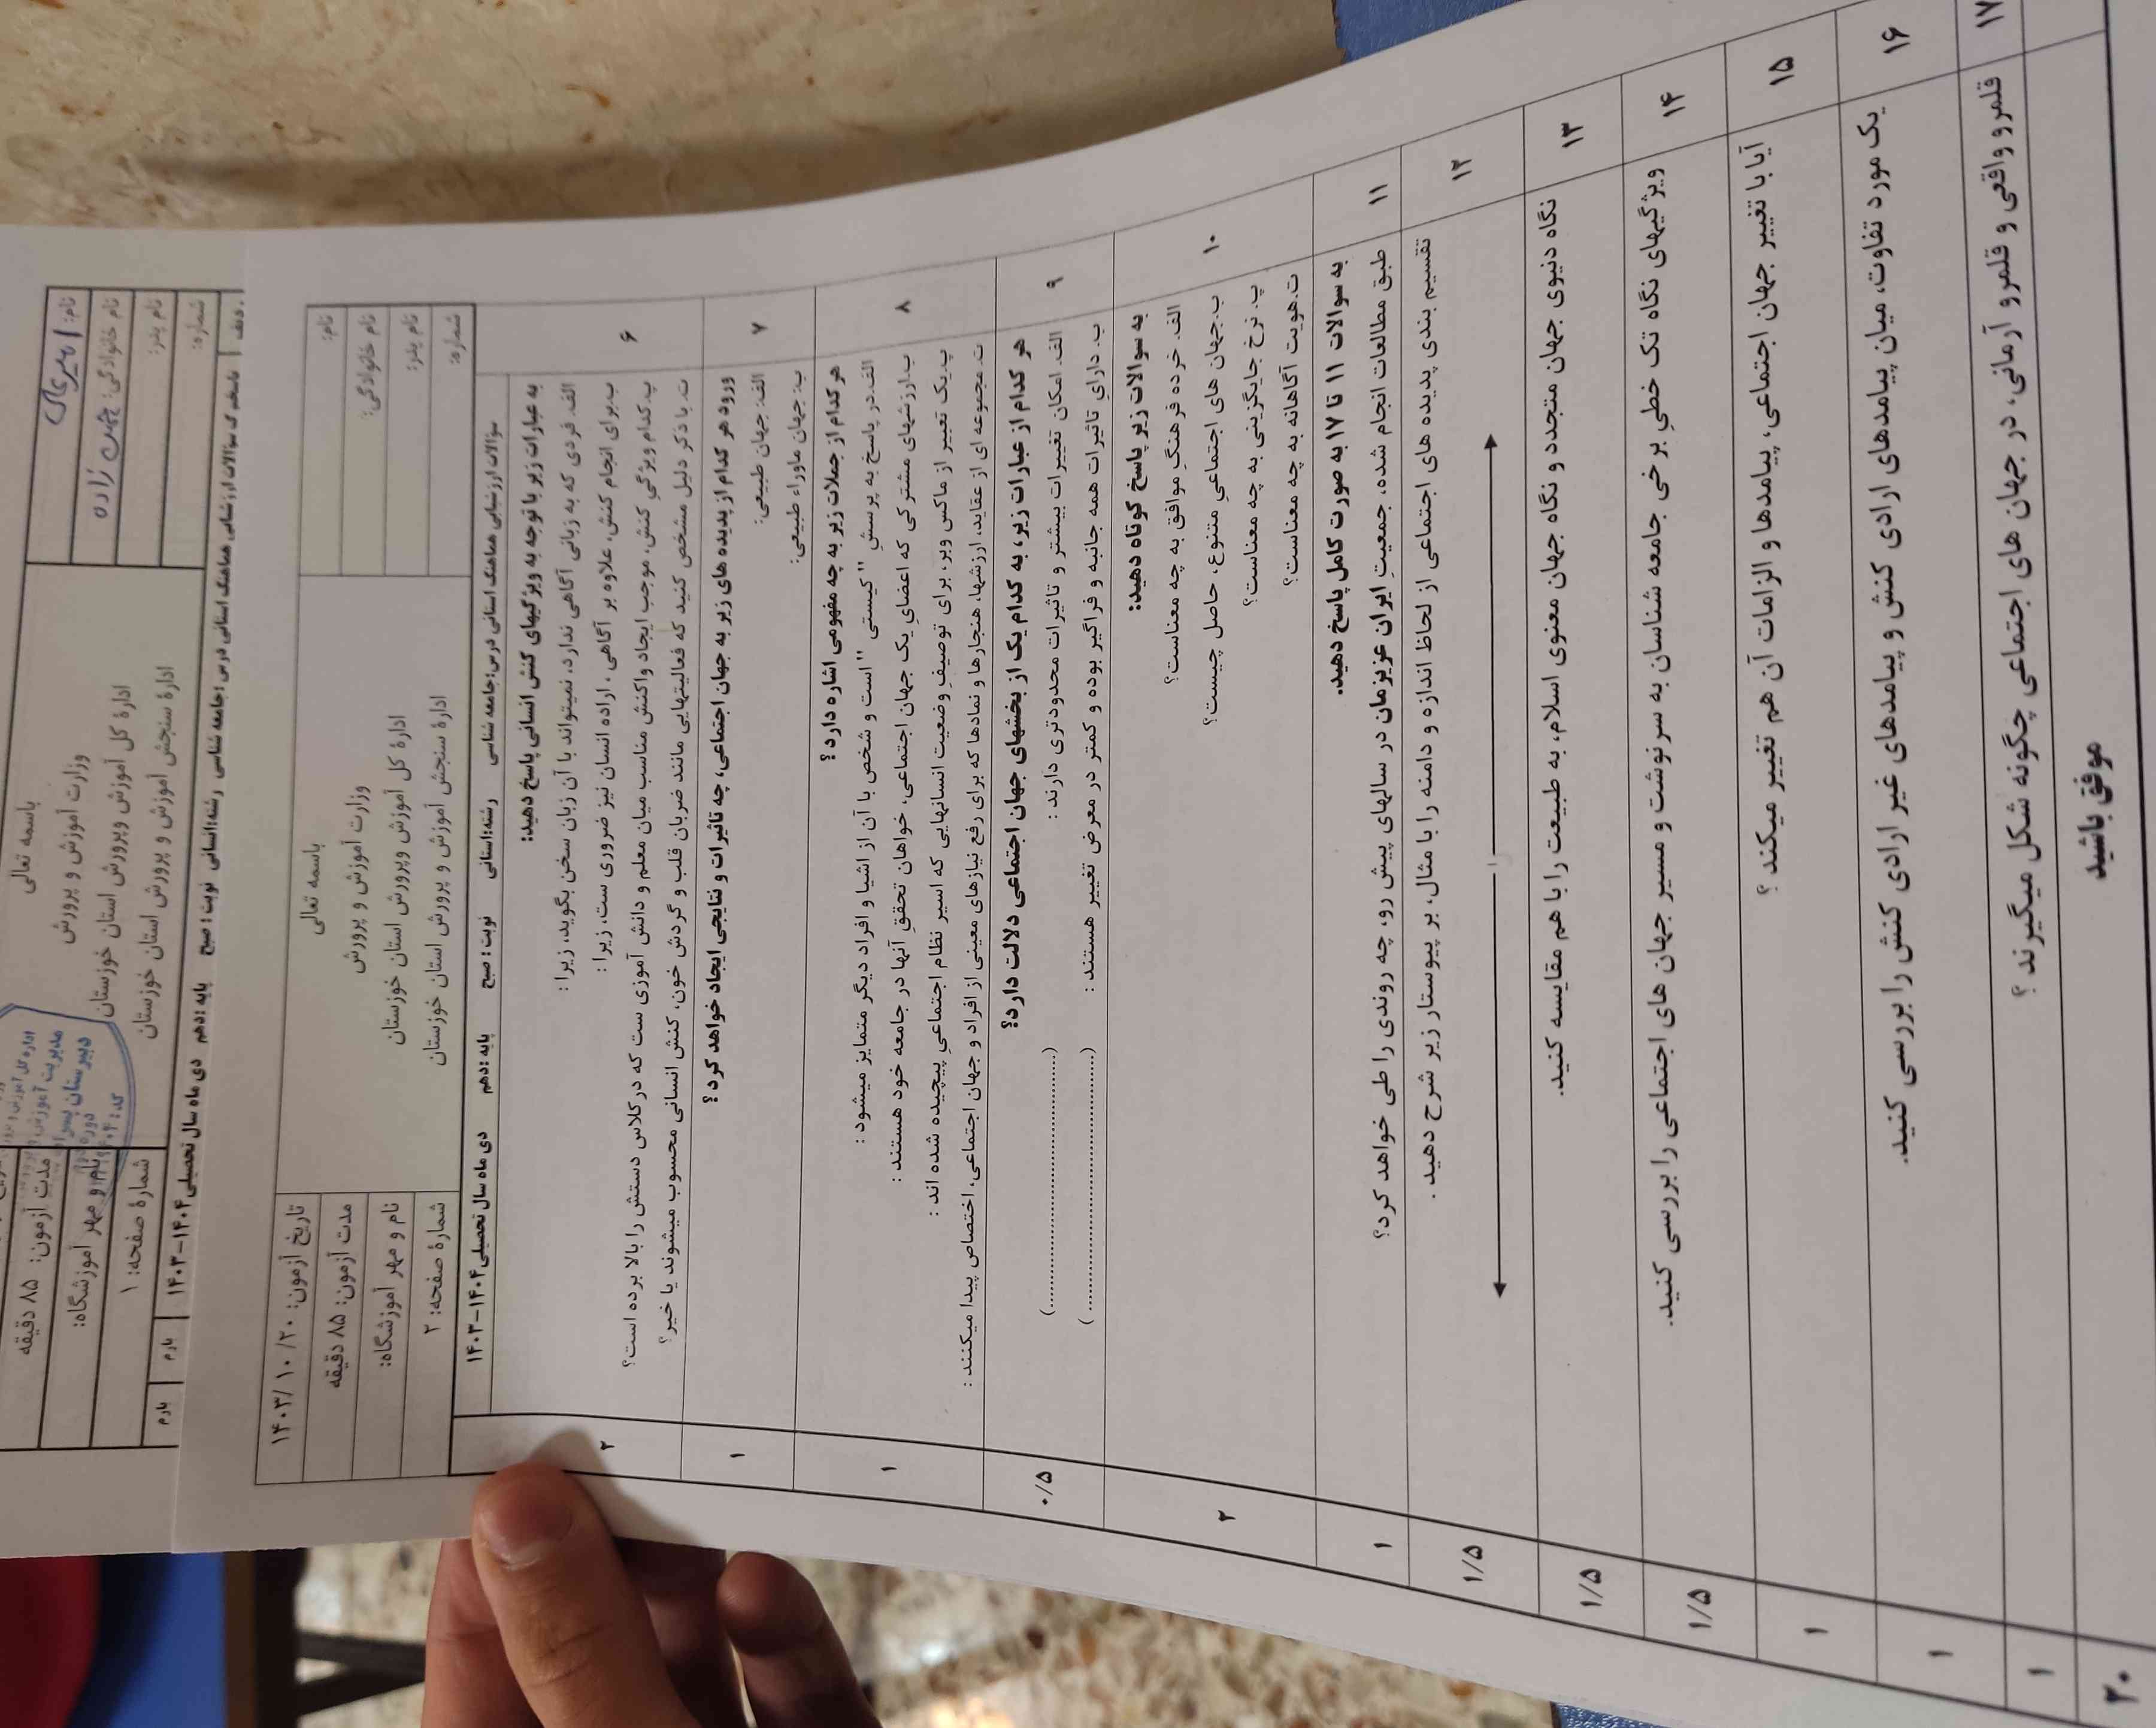 باسمه تعالی
وزارت آموزش و پرورش
ادارۀ کل آموزش وپرورش استان خوزستان
ادارۀ سنجش آموزش و پرورش استان خوزستان
نام: امیرعلی
نام خانوادگی: زاده
نام پدر:
شماره:
مدت آزمون: ۸۵ دقیقه
نام و مهر آموزشگاه:
شمارۀ صفحه: ۱
دبیرستان پسرانه
دوره
کد:
سؤالات ارزشیابی هماهنگ استانی درس:جامعه شناسی رشته:انسانی نوبت : صبح پایه :دهم دی ماه سال تحصیلی ۱۴۰۴-۱۴۰۳
بارم
بارم
باسمه تعالی
وزارت آموزش و پرورش
ادارۀ کل آموزش وپرورش استان خوزستان
ادارۀ سنجش آموزش و پرورش استان خوزستان
نام:
نام خانوادگی:
نام پدر:
شماره:
تاریخ آزمون: ۱۴۰۳/۱۰/۲۰
مدت آزمون: ۸۵ دقیقه
نام و مهر آموزشگاه:
شمارۀ صفحه: ۲
سؤالات ارزشیابی هماهنگ استانی درس:جامعه شناسی رشته:انسانی نوبت : صبح پایه :دهم دی ماه سال تحصیلی ۱۴۰۴-۱۴۰۳
۶ به عبارات زیر با توجه به ویژگیهای کنش انسانی پاسخ دهید: ۲
الف. فردی که به زبانی آگاهی ندارد، نمیتواند با آن زبان سخن بگوید، زیرا :
ب.برای انجام کنش، علاوه بر آگاهی، اراده انسان نیز ضروری ست، زیرا :
پ.کدام ویژگیِ کنش، موجب ایجاد واکنش مناسب میان معلم و دانش آموزی ست که درکلاس دستش را بالا برده است؟
ت. با ذکر دلیل مشخص کنید که فعالیتهایی مانند ضربان قلب و گردش خون، کنش انسانی محسوب میشوند یا خیر؟
۷ ورود هر کدام از پدیده های زیر به جهان اجتماعی، چه تاثیرات و نتایجی ایجاد خواهد کرد ؟ ۱
الف: جهان طبیعی:
ب: جهان ماوراء طبیعی:
۸ هرکدام از جملات زیر به چه مفهومی اشاره دارد ؟ ۱
الف.در پاسخ به پرسشِ "کیستی" است و شخص با آن از اشیا و افراد دیگر متمایز میشود :
ب.ارزشهای مشترکی که اعضای یک جهان اجتماعی، خواهان تحقق آنها در جامعه خود هستند :
پ.یک تعبیر از ماکس وبر، برای توصیفِ وضعیت انسانهایی که اسیر نظام اجتماعیِ پیچیده شده اند :
ت.مجموعه ای از عقاید، ارزشها، هنجارها و نمادها که برای رفع نیازهای معینی از افراد و جهان اجتماعی، اختصاص پیدا میکنند :
۹ هر کدام از عبارات زیر، به کدام یک از بخشهای جهان اجتماعی دلالت دارد؟ ۰/۵
الف. امکان تغییرات بیشتر و تاثیرات محدودتری دارند : (................................)
ب. دارای تاثیرات همه جانبه و فراگیر بوده و کمتر در معرض تغییر هستند : (................................)
۱۰ به سوالات زیر پاسخ کوتاه دهید: ۲
الف. خرده فرهنگِ موافق به چه معناست؟
ب.جهان های اجتماعیِ متنوع، حاصل چیست؟
پ. نرخ جایگزینی به چه معناست؟
ت.هویت آگاهانه به چه معناست؟
به سوالات ۱۱ تا ۱۷ به صورت کامل پاسخ دهید.
۱۱ طبق مطالعات انجام شده، جمعیتِ ایران عزیزمان در سالهای پیش رو، چه روندی را طی خواهد کرد؟ ۱
۱۲ تقسیم بندی پدیده های اجتماعی از لحاظ اندازه و دامنه را با مثال، بر پیوستار زیر شرح دهید . ۱/۵
۱۳ نگاه دنیوی جهان متجدد و نگاه جهان معنوی اسلام، به طبیعت را با هم مقایسه کنید. ۱/۵
۱۴ ویژگیهای نگاه تک خطیِ برخی جامعه شناسان به سرنوشت و مسیر جهان های اجتماعی را بررسی کنید. ۱/۵
۱۵ آیا با تغییر جهان اجتماعی، پیامدها و الزامات آن هم تغییر میکند ؟ ۱
۱۶ یک مورد تفاوت، میان پیامدهای ارادی کنش و پیامدهای غیر ارادی کنش را بررسی کنید. ۱
۱۷ قلمرو واقعی و قلمرو آرمانی، در جهان های اجتماعی چگونه شکل میگیرند ؟ ۱
موفق باشید ۲۰